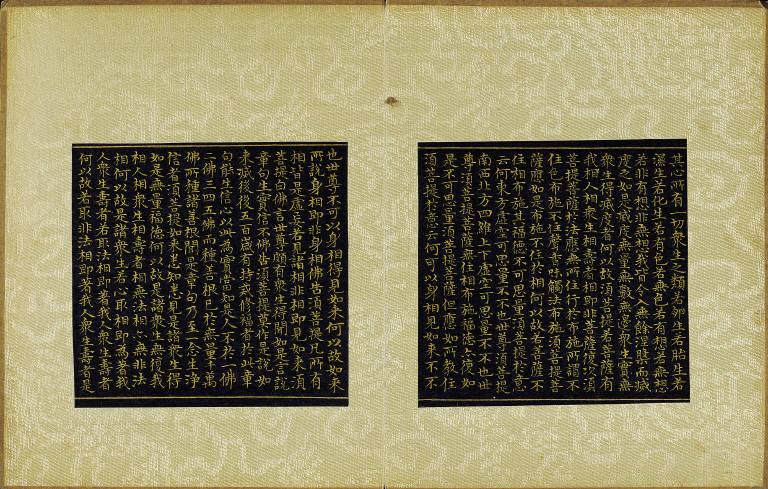 其心所有一切衆生之類若卵生若胎生若
濕生若化生若有色若無色若有想若無想
若非有想非無想我皆令入無餘涅槃而滅
度之如是滅度無量無數無邊衆生實無
衆生得滅度者何以故須菩提若菩薩有
我相人相衆生相壽者相即非菩薩復次須
菩提菩薩於法應無所住行於布施所謂不
住色布施不住聲香味觸法布施須菩提菩
薩應如是布施不住於相何以故若菩薩不
住相布施其福德不可思量須菩提於意
云何東方虛空可思量不不也世尊須菩提
南西北方四維上下虛空可思量不不也世
尊須菩提菩薩無住相布施福德亦復如
是不可思量須菩提菩薩但應如所教住
須菩提於意云何可以身相見如來不不
也世尊不可以身相得見如來何以故如來
所說身相即非身相佛告須菩提凡所有
相皆是虛妄若見諸相非相即見如來須
菩提白佛言世尊頗有衆生得聞如是言說
章句生實信不佛告須菩提莫作是說如
來滅後後五百歲有持戒修福者於此章
句能生信心以此為實當知是人不於一佛
二佛三四五佛而種善根已於無量千萬
佛所種諸善根聞是章句乃至一念生淨
信者須菩提如來悉知悉見是諸衆生得
如是無量福德何以故是諸衆生無復我
相人相衆生相壽者相無法相亦無非法
相何以故是諸衆生若心取相即為著我
人衆生壽者若取法相即著我人衆生壽者
何以故若取非法相即著我人衆生壽者是